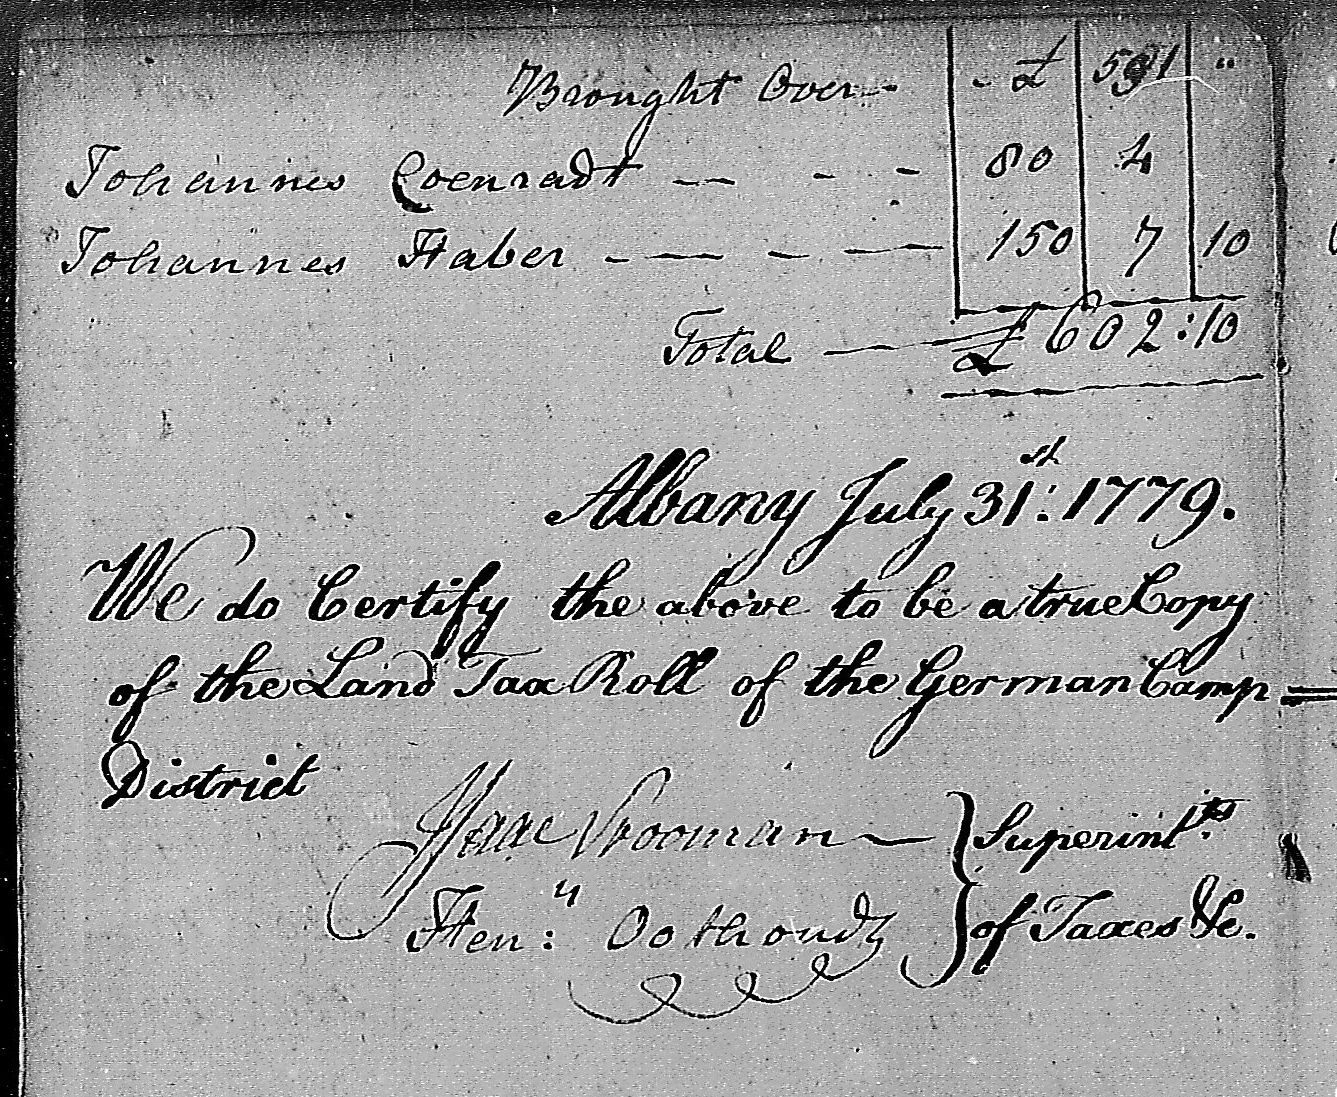 Brought Over - - £ 591 "
Johannes Coenradt — - - - 80 4
Johannes Haber - — - — 150 7 10
Total — £ 602:10
Albany July 31st: 1779.
We do Certify the above to be a true Copy
of the Land Tax Roll of the German Camp
District
Isaac Vrooman — } Superints
Hen:y Oothoudt } of Taxes &c.